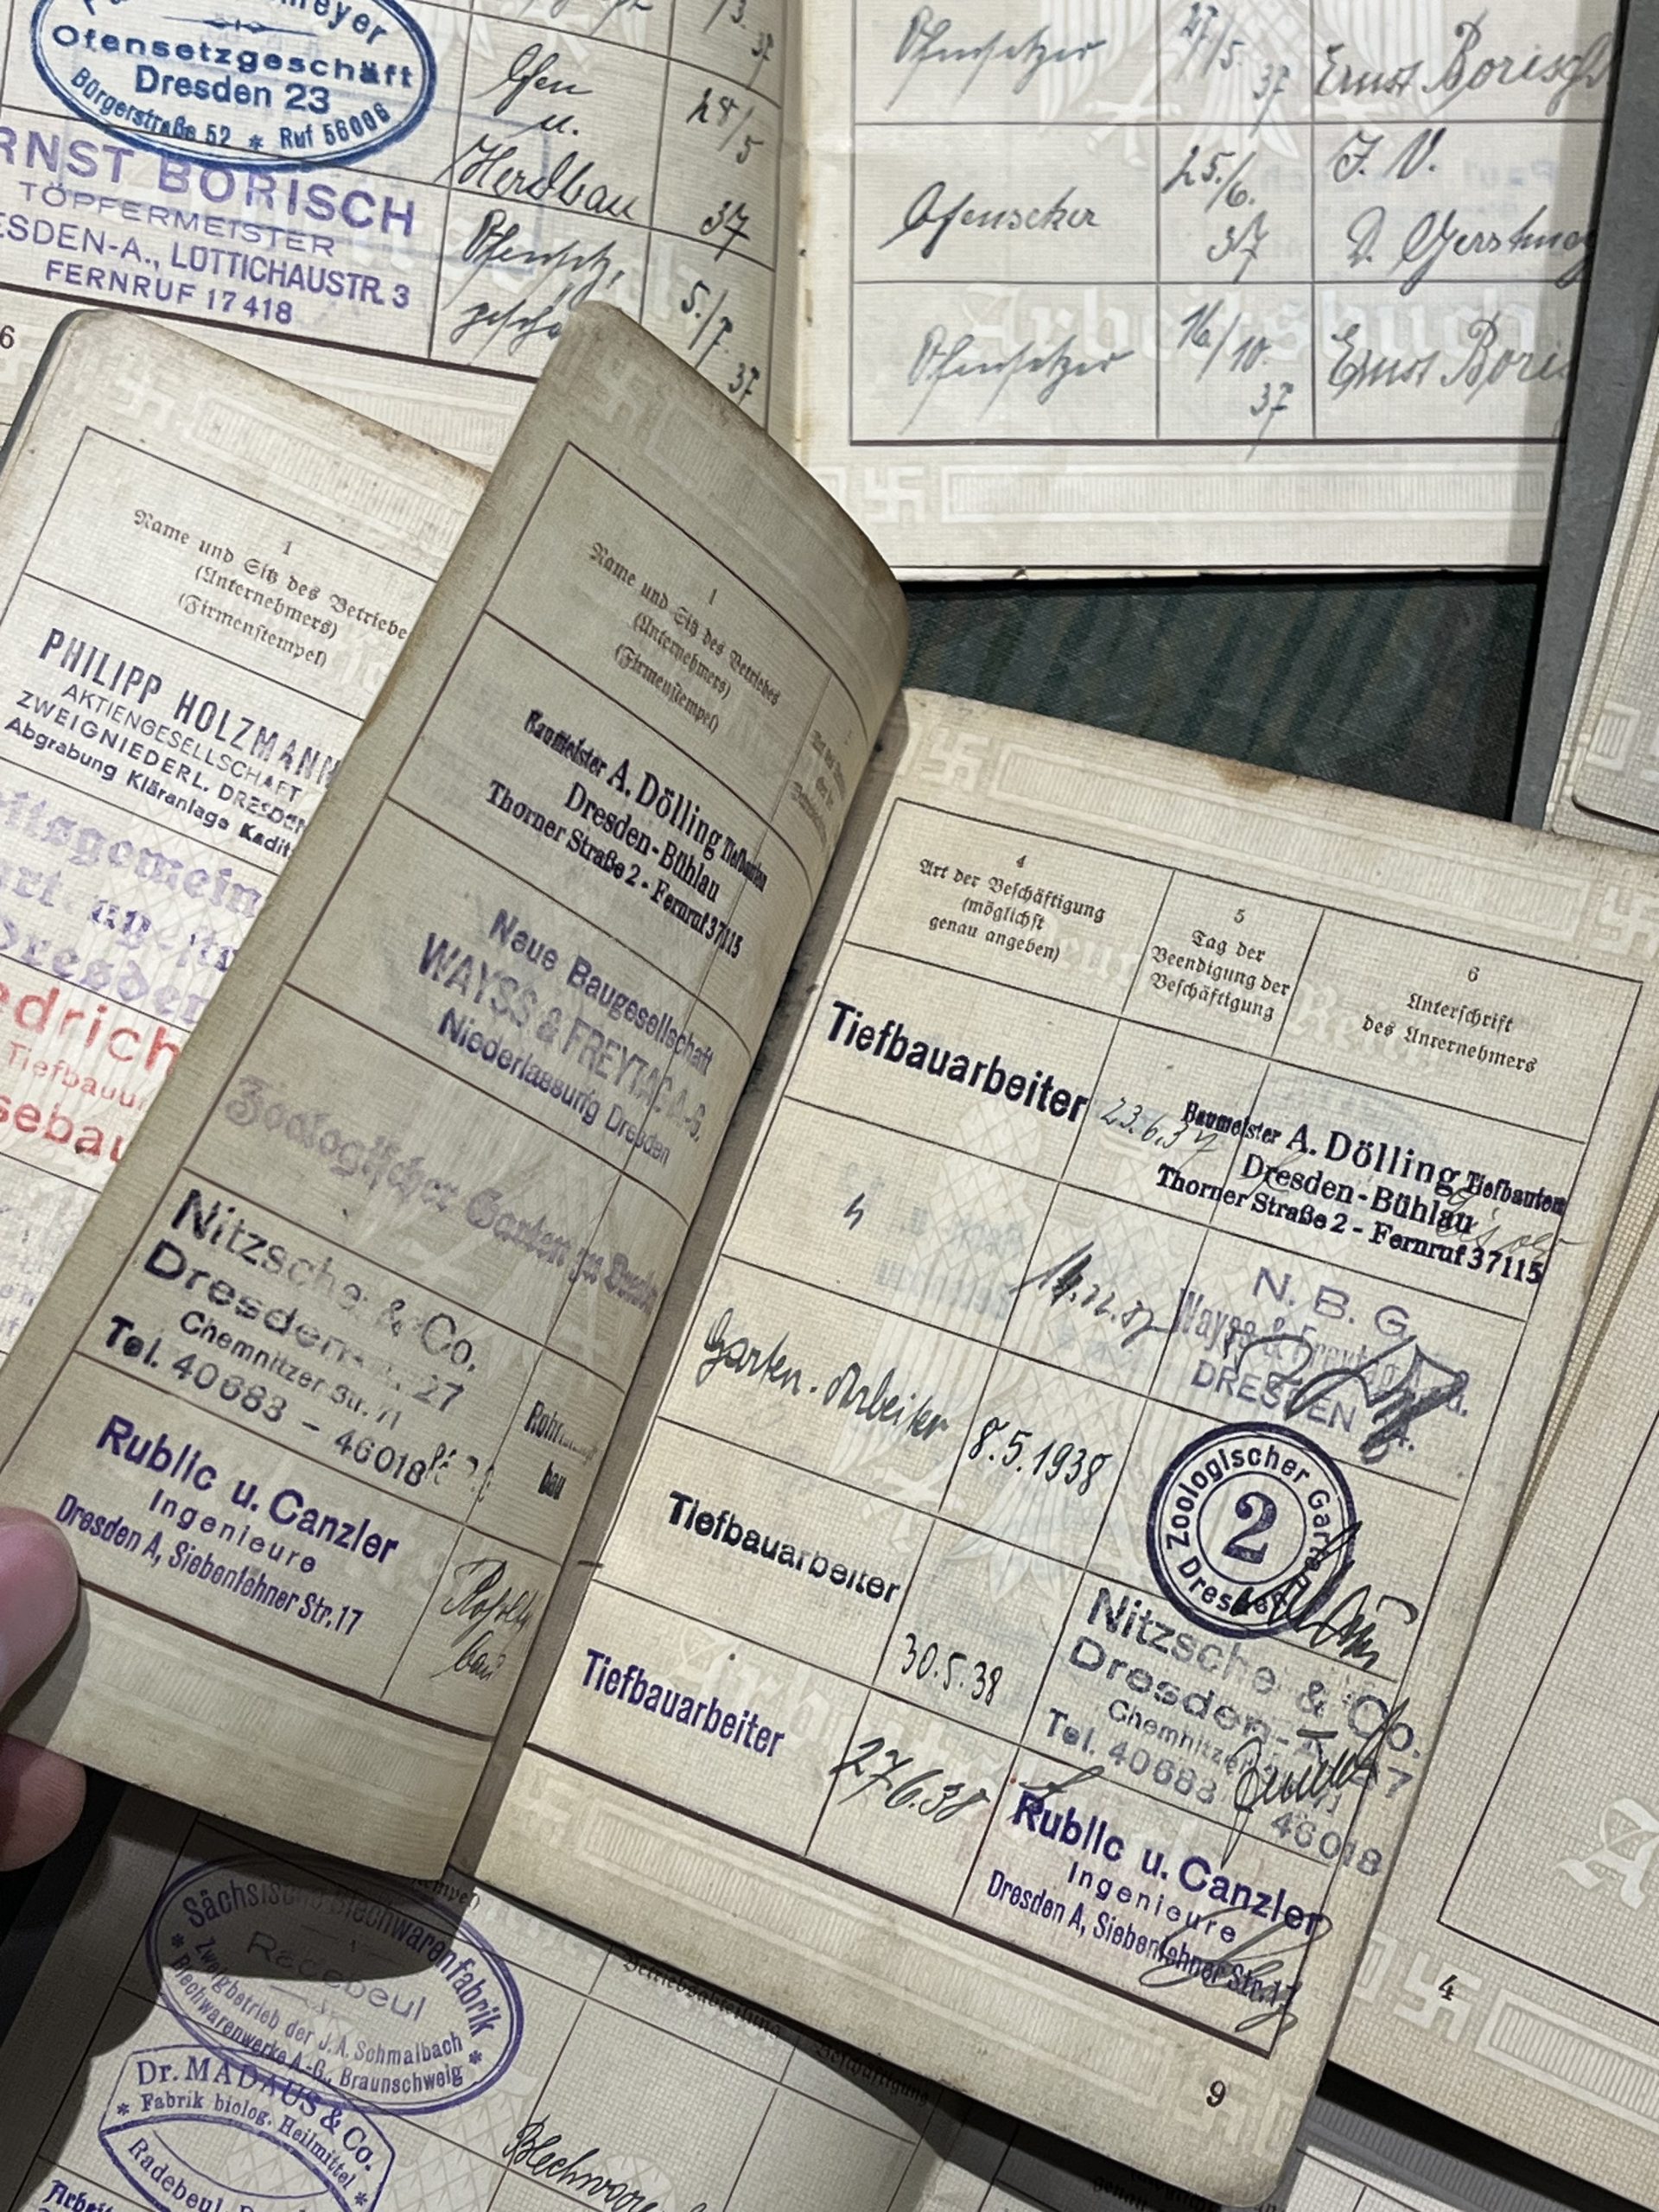 meyer
Ofensetzgeschäft
Dresden 23
Bürgerstraße 52 * Ruf 56006
RNST BORISCH
TÖPFERMEISTER
ESDEN-A., LÜTTICHAUSTR. 3
FERNRUF 17418
6
Ofen
u.
Herdbau
28/5
37
5./7.
37
Ofensetzer
27/5.
37
Ernst Borisch
Ofensetzer
25./6.
37
I. V.
Ofensetzer
16/10.
37
Ernst Boris
Arbeitsbuch
1
Name und Sitz des Betriebe
(Unternehmers)
(Firmenstempel)
PHILIPP HOLZMANN
AKTIENGESELLSCHAFT
ZWEIGNIEDERL. DRESDEN
Abgrabung Kläranlage Kadit
itsgemein
Dresden
edrich
Tiefbau
sebau
1
Name und Sitz des Betriebes
(Unternehmers)
(Firmenstempel)
Baumeister A. Dölling Tiefbauten
Dresden-Bühlau
Thorner Straße 2 - Fernruf 37115
Neue Baugesellschaft
WAYSS & FREYTAG A.-G.
Niederlassung Dresden
Zoologischer Garten zu Dresden
Nitzsche & Co.
Dresden- 27
Chemnitzer Str. 71
Tel. 40683 - 46018
Rohr
bau
Rublic u. Canzler
Ingenieure
Dresden A, Siebenlehner Str. 17
bau
4
Art der Beschäftigung
(möglichst
genau angeben)
5
Tag der
Beendigung der
Beschäftigung
6
Unterschrift
des Unternehmers
Tiefbauarbeiter
23.6.37
Baumeister A. Dölling Tiefbauten
Dresden-Bühlau
Thorner Straße 2 - Fernruf 37115
N. B. G.
Wayss & Freytag
DRESDEN
Garten-Arbeiter
8.5.1938
Zoologischer Garten
2
Dresden
Tiefbauarbeiter
30.5.38
Nitzsche & Co.
Dresden- 27
Chemnitzer
Tel. 40683
46018
Tiefbauarbeiter
27.6.38
Rublic u. Canzler
Ingenieure
Dresden A, Siebenlehner Str. 17
9
4
Sächsische Blechwarenfabrik
Radebeul
Zweigbetrieb der J. A. Schmalbach
Blechwarenwerke A.-G., Braunschweig
Dr. MADAUS & Co.
* Fabrik biolog. Heilmittel *
Radebeul
Blechwaren